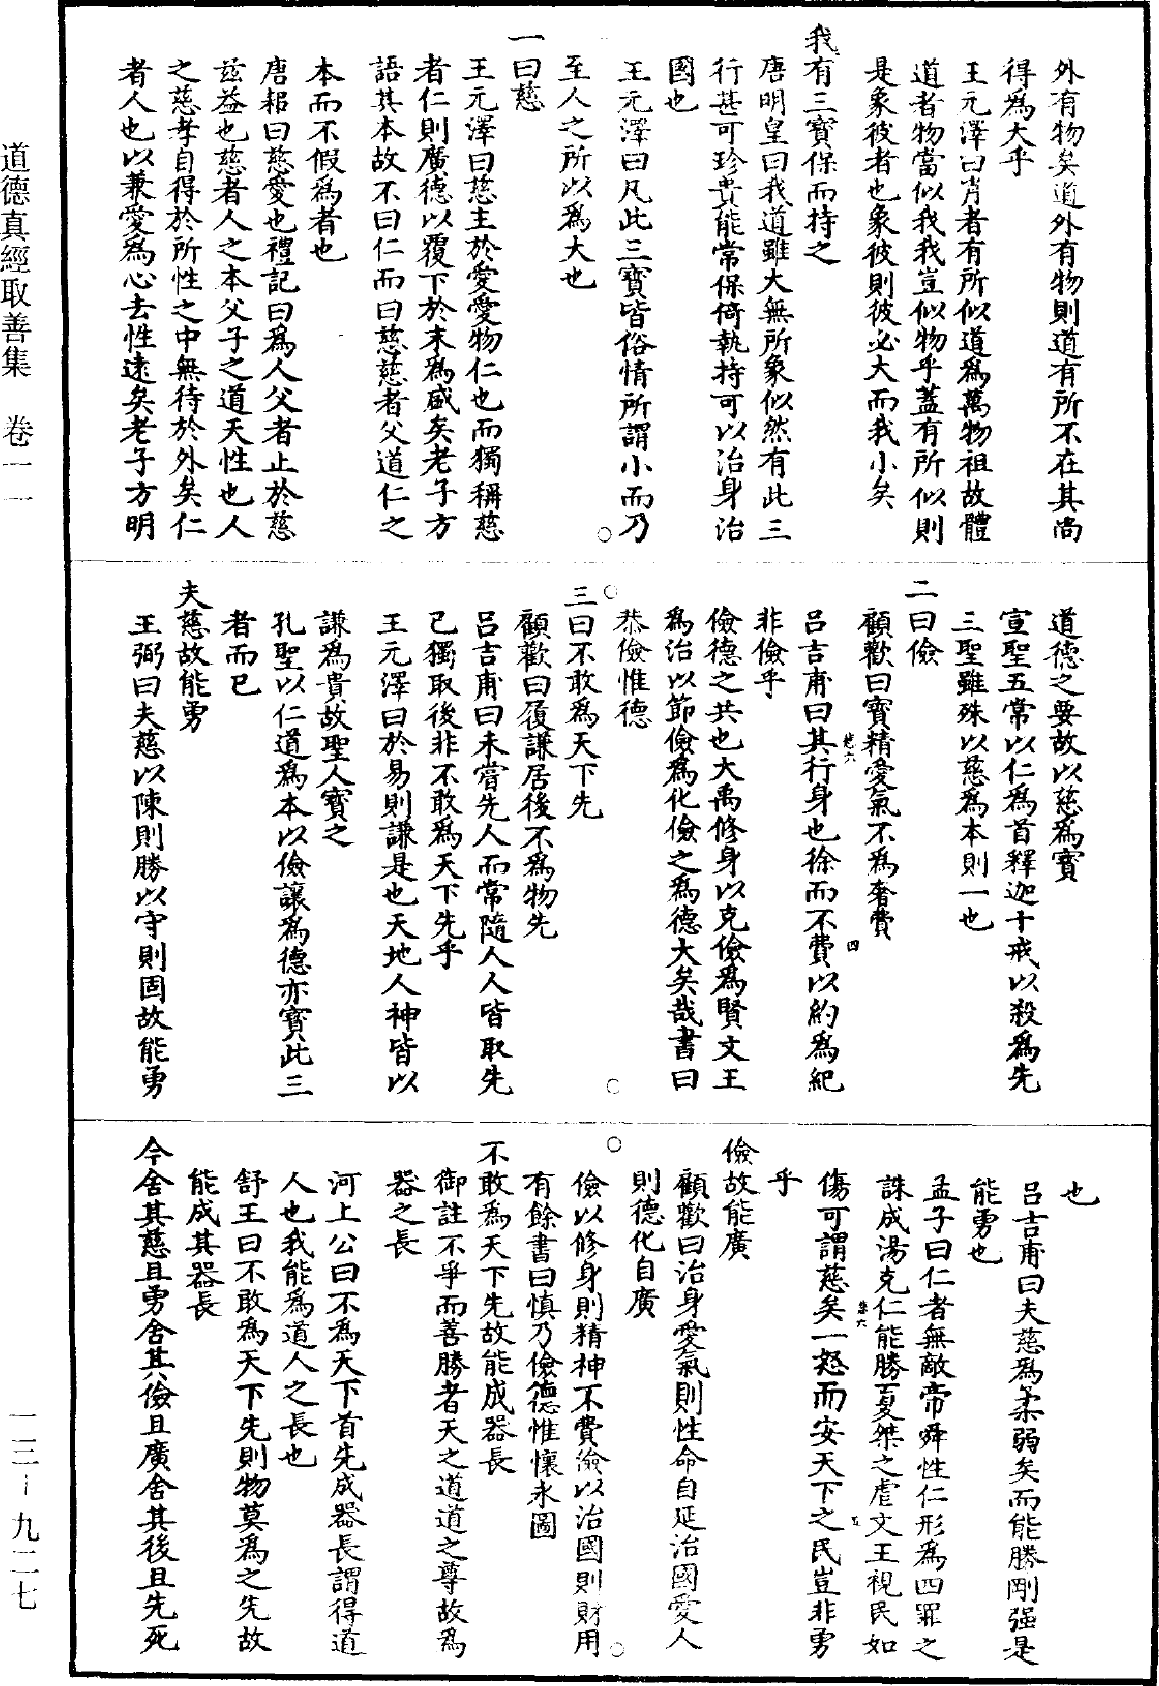 外有物矣道外有物則道有所不在其尚
得為大乎
王元澤曰肖者有所似道為萬物祖故體
道者物當似我我豈似物乎蓋有所似則
是象彼者也象彼則彼必大而我小矣
我有三寶保而持之
唐明皇曰我道雖大無所象似然有此三
行甚可珍貴能常保倚執持可以治身治
國也
王元澤曰凡此三寶皆俗情所謂小而乃
至人之所以為大也
一曰慈
王元澤曰慈主於愛愛物仁也而獨稱慈
者仁則廣德以覆下於末為盛矣老子方
語其本故不曰仁而曰慈慈者父道仁之
本而不假為者也
唐耜曰慈愛也禮記曰為人父者止於慈
玆益也慈者人之本父子之道天性也人
之慈孝自得於所性之中無待於外矣仁
者人也以兼愛為心去性遠矣老子方明
道德之要故以慈為寶
宣聖五常以仁為首釋迦十戒以殺為先
三聖雖殊以慈為本則一也
二曰儉
顧歡曰寶精愛氣不為奢費
呂吉甫曰其行身也徐而不費以約為紀
非儉乎
儉德之共也大禹修身以克儉為賢文王
為治以節儉為化儉之為德大矣哉書曰
恭儉惟德
三曰不敢為天下先
顧歡曰履謙居後不為物先
呂吉甫曰未嘗先人而常隨人人皆取先
己獨取後非不敢為天下先乎
王元澤曰於易則謙是也天地人神皆以
謙為貴故聖人寶之
孔聖以仁道為本以儉讓為德亦寶此三
者而已
夫慈故能勇
王弼曰夫慈以陳則勝以守則固故能勇
也
呂吉甫曰夫慈為柔弱矣而能勝剛強是
能勇也
孟子曰仁者無敵帝舜性仁形為四罪之
誅成湯克仁能勝夏桀之虐文王視民如
傷可謂慈矣一怒而安天下之民豈非勇
乎
儉故能廣
顧歡曰治身愛氣則性命自延治國愛人
則德化自廣
儉以修身則精神不費儉以治國則財用
有餘書曰慎乃儉德惟懷永圖
不敢為天下先故能成器長
御註不爭而善勝者天之道道之尊故為
器之長
河上公曰不為天下首先成器長謂得道
人也我能為道人之長也
舒王曰不敢為天下先則物莫為之先故
能成其器長
今舍其慈且勇舍其儉且廣舍其後且先死
道德真經取善集　卷一一
一三－九二七